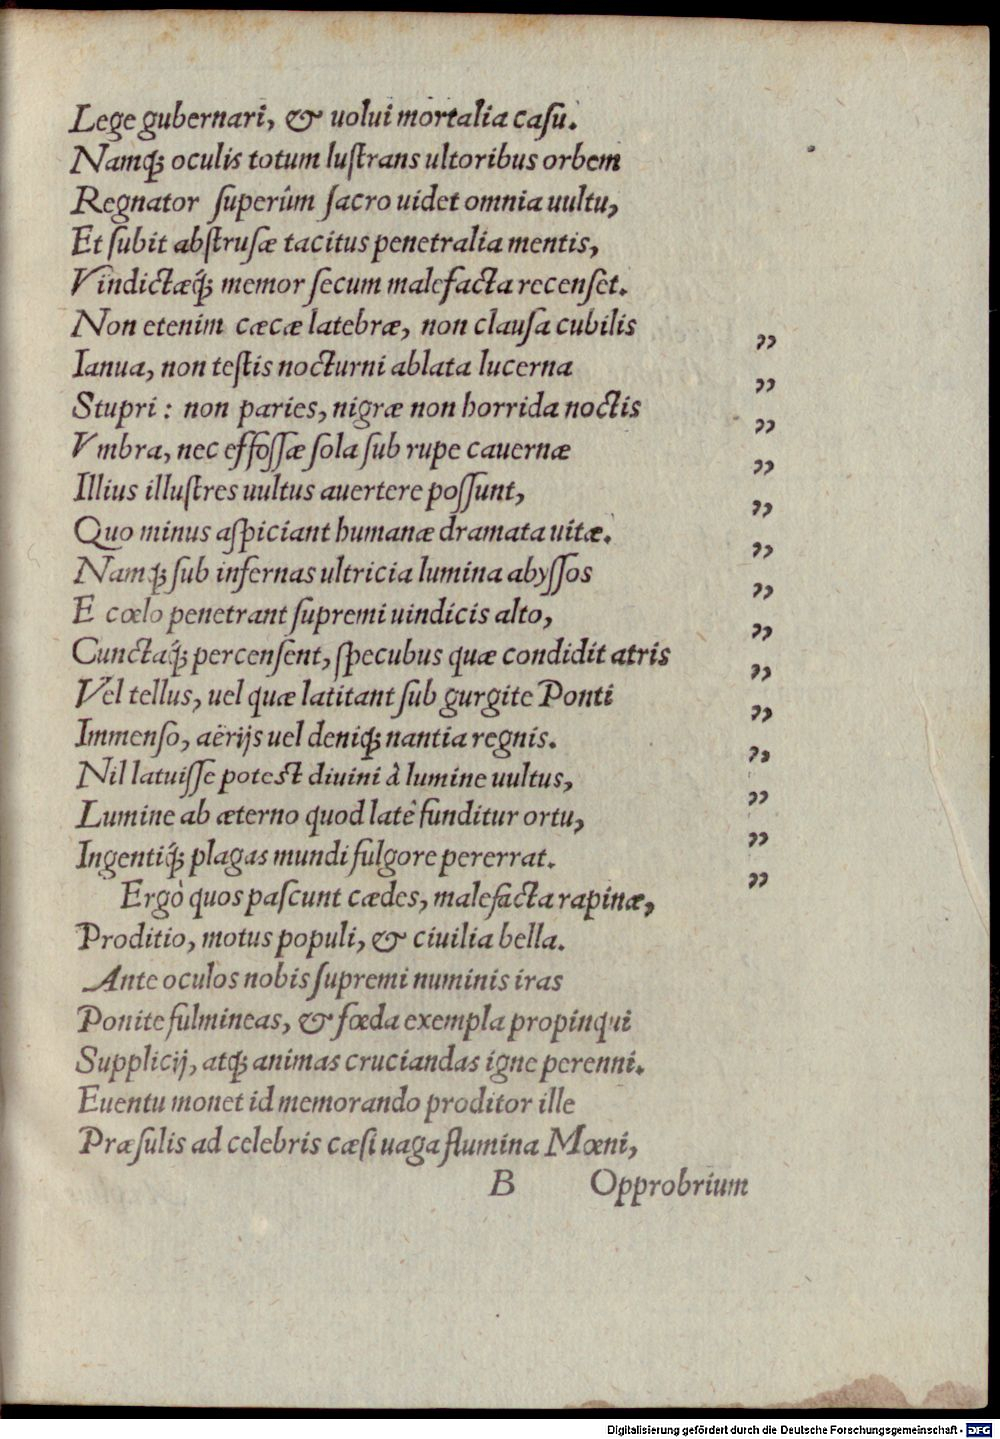 Lege gubernari, & uolui mortalia caſu.
Namq́; oculis totum luſtrans ultoribus orbem
Regnator ſuperûm ſacro uidet omnia uultu,
Et ſubit abſtruſæ tacitus penetralia mentis,
Vindictæq́; memor ſecum malefacta recenſet.
Non etenim cæcæ latebræ, non clauſa cubilis ”
Ianua, non teſtis nocturni ablata lucerna ”
Stupri: non paries, nigræ non horrida noctis ”
Vmbra, nec effoſſæ ſola ſub rupe cauernæ ”
Illius illuſtres uultus auertere poſſunt, ”
Quo minus aſpiciant humanæ dramata uitæ. ”
Namq; ſub infernas ultricia lumina abyſſos ”
E cœlo penetrant ſupremi uindicis alto, ”
Cunctaq́; percenſent, ſpecubus quæ condidit atris ”
Vel tellus, uel quæ latitant ſub gurgite Ponti ”
Immenſo, aërijs uel deniq; nantia regnis. ”
Nil latuiſſe potest diuini à lumine uultus, ”
Lumine ab æterno quod latè funditur ortu, ”
Ingentiq́; plagas mundi fulgore pererrat. ”
Ergò quos paſcunt cædes, malefacta rapinæ,
Proditio, motus populi, & ciuilia bella.
Ante oculos nobis ſupremi numinis iras
Ponite fulmineas, & fœda exempla propinqui
Supplicij, atq; animas cruciandas igne perenni.
Euentu monet id memorando proditor ille
Præſulis ad celebris cæſi uaga flumina Mœni,
B Opprobrium
Digitalisierung gefördert durch die Deutsche Forschungsgemeinschaft - DFG